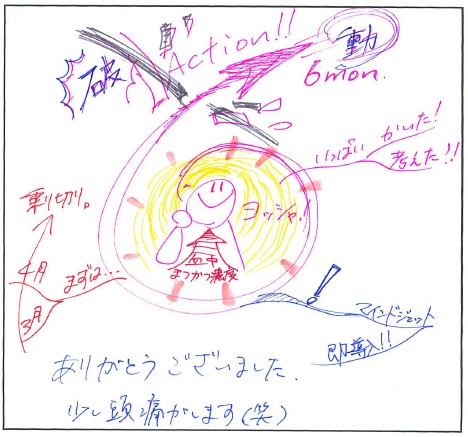 破
Action!!
動
6mon.
いっぱい かいた!
考えた!!
ヨッシャ!
血中
まつかつ濃度
乗り切り。
4月
3月
まずは…
!
マインドジェット
即導入!!
ありがとうございました.
少し頭痛がします(笑)